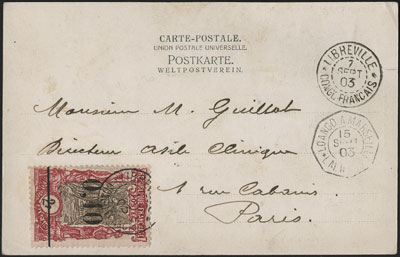 CARTE-POSTALE.
UNION POSTALE UNIVERSELLE.
POSTKARTE.
WELTPOSTVEREIN.
LIBREVILLE
7
SEPT
03
CONGO FRANCAIS
LOANGO A MARSEILLE
15
SEPT
03
Monsieur M. Guillot
Directeur Asile Clinique
1 rue Cabanis
Paris.
0,10